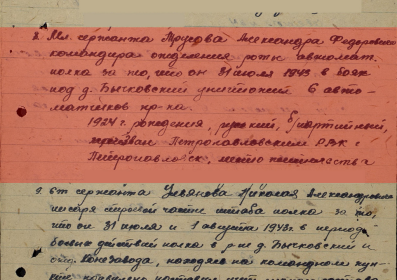 8. Мл. сержанта Трусова Александра Федоровича
командира отделения роты автомат.
полка за то, что он 31 июля 1943 в боях
под д. Бысковский уничтожил 6 авто-
матчиков пр-ка.
1924 г. рождения, русский, б/партийный,
призван Петропавловским РВК г.
Петропавловск, место жительства
9. Ст. сержанта Ульянова Николая Александровича
писаря строевой части штаба полка за то,
что он 31 июля и 1 августа 1943г. в период
боевых действий полка в р-не д. Бысковский и
Конезавода, находясь на командном пун-